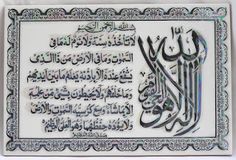 بسم الله الرحمن الرحيم
الله لا إله إلا هو الحي القيوم
لا تأخذه سنة ولا نوم له ما في
السموات وما في الأرض من ذا الذي
يشفع عنده إلا بإذنه يعلم ما بين أيديهم
وما خلفهم ولا يحيطون بشيء من علمه
إلا بما شاء وسع كرسيه السموات والأرض
ولا يؤده حفظهما وهو العلي العظيم